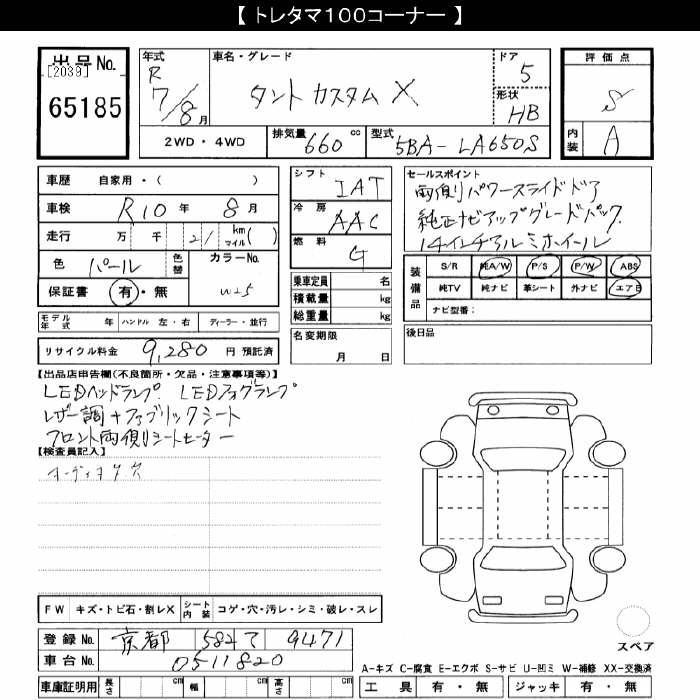 【 トレタマ100コーナー 】
出品No.
[2039]
65185
年式
R
7/8月
車名・グレード
タント カスタム X
ドア
5
形状
HB
評価点
S
内装
A
2WD・4WD
排気量 660 cc
型式 5BA-LA650S
車歴 自家用・( )
車検 R10年 8月
走行 万 千 21 km マイル( )
色 パール 色替 カラーNo.
W25
保証書 有・無
シフト
IAT
冷房
AAC
燃料
G
乗車定員 名
積載量 kg
総重量 kg
セールスポイント
両側パワースライドドア
純正ナビアップグレードパック
14インチアルミホイール
装備品
S/R 純A/W P/S P/W ABS
純TV 純ナビ 革シート 外ナビ エアB
ナビ型番:
モデル年式 年 ハンドル 左・右 ディーラー・並行
名変期限
月 日
後日品
リサイクル料金 9,280 円 預託済
【出品店申告欄(不良箇所・欠品・注意事項等)】
LEDヘッドランプ LEDフォグランプ
レザー調+ファブリックシート
フロント両側シートヒーター
【検査員記入】
オーディオ
FW キズ・トビ石・割レX シート内装 コゲ・穴・汚レ・シミ・破レ・スレ
登録No. 京都 582 て 9471
車台No. 0511820
スペア
車庫証明用 長さ cm 幅 cm 高さ cm
A-キズ C-腐食 E-エクボ S-サビ U-凹ミ W-補修 XX-交換済
工具 有・無 ジャッキ 有・無